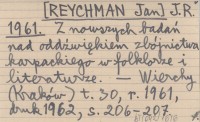 [REYCHMAN Jan] J.R.
1961. Z nowszych badań
nad oddźwiękiem zbójnictwa
karpackiego w folklorze i
literaturze. — Wierchy
(Kraków) t. 30, r. 1961,
druk 1962, s. 206-207